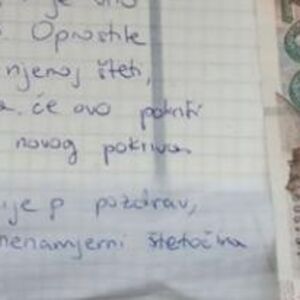 je
Oprostite
njenoj šteti,
će ovo pokriti
novog pokriva
p pozdrav,
nenamjerni štetočina